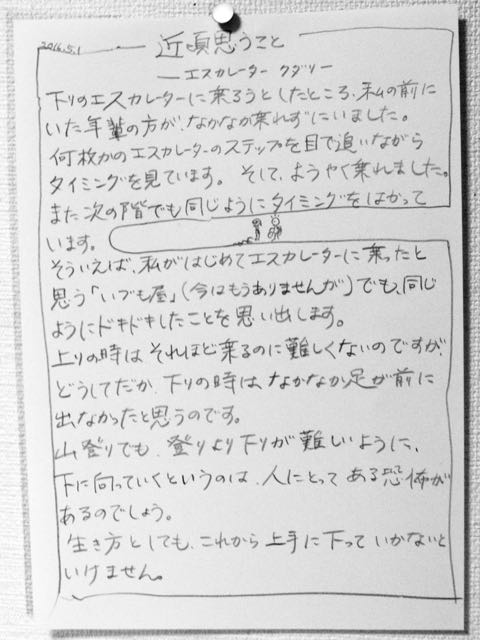 2016.5.1
近頃思うこと
―エスカレーター クダリ―
下りのエスカレーターに乗ろうとしたところ、私の前に
いた年輩の方が、なかなか乗れずにいました。
何枚かのエスカレーターのステップを目で追いながら
タイミングを見ています。そして、ようやく乗れました。
また次の階でも同じようにタイミングをはかって
います。
そういえば、私がはじめてエスカレーターに乗ったと
思う「いづも屋」(今はもうありませんが)でも、同じ
ようにドキドキしたことを思い出します。
上りの時はそれほど乗るのに難しくないのですが、
どうしてだか、下りの時は、なかなか足が前に
出なかったと思うのです。
山登りでも、登りより下りが難しいように、
下に向っていくというのは、人にとってある恐怖が
あるのでしょう。
生き方としても、これから上手に下っていかないと
いけません。